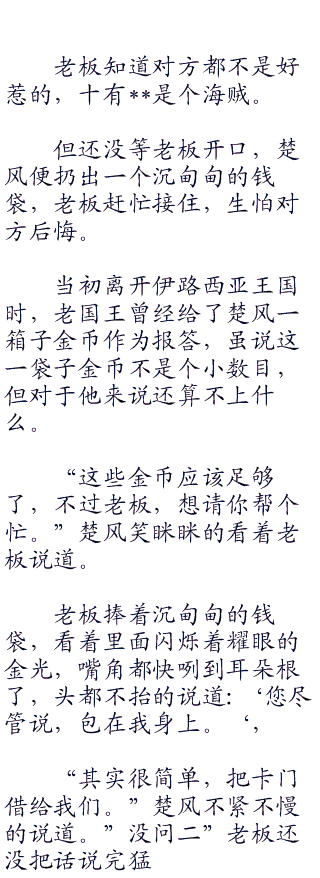 老板知道对方都不是好
惹的，十有**是个海贼。
但还没等老板开口，楚
风便扔出一个沉甸甸的钱
袋，老板赶忙接住，生怕对
方后悔。
当初离开伊路西亚王国
时，老国王曾经给了楚风一
箱子金币作为报答，虽说这
一袋子金币不是个小数目，
但对于他来说还算不上什
么。
“这些金币应该足够
了，不过老板，想请你帮个
忙。”楚风笑眯眯的看着老
板说道。
老板捧着沉甸甸的钱
袋，看着里面闪烁着耀眼的
金光，嘴角都快咧到耳朵根
了，头都不抬的说道:‘您尽
管说，包在我身上。‘,
“其实很简单，把卡门
借给我们。”楚风不紧不慢
的说道。”没问二”老板还
没把话说完猛